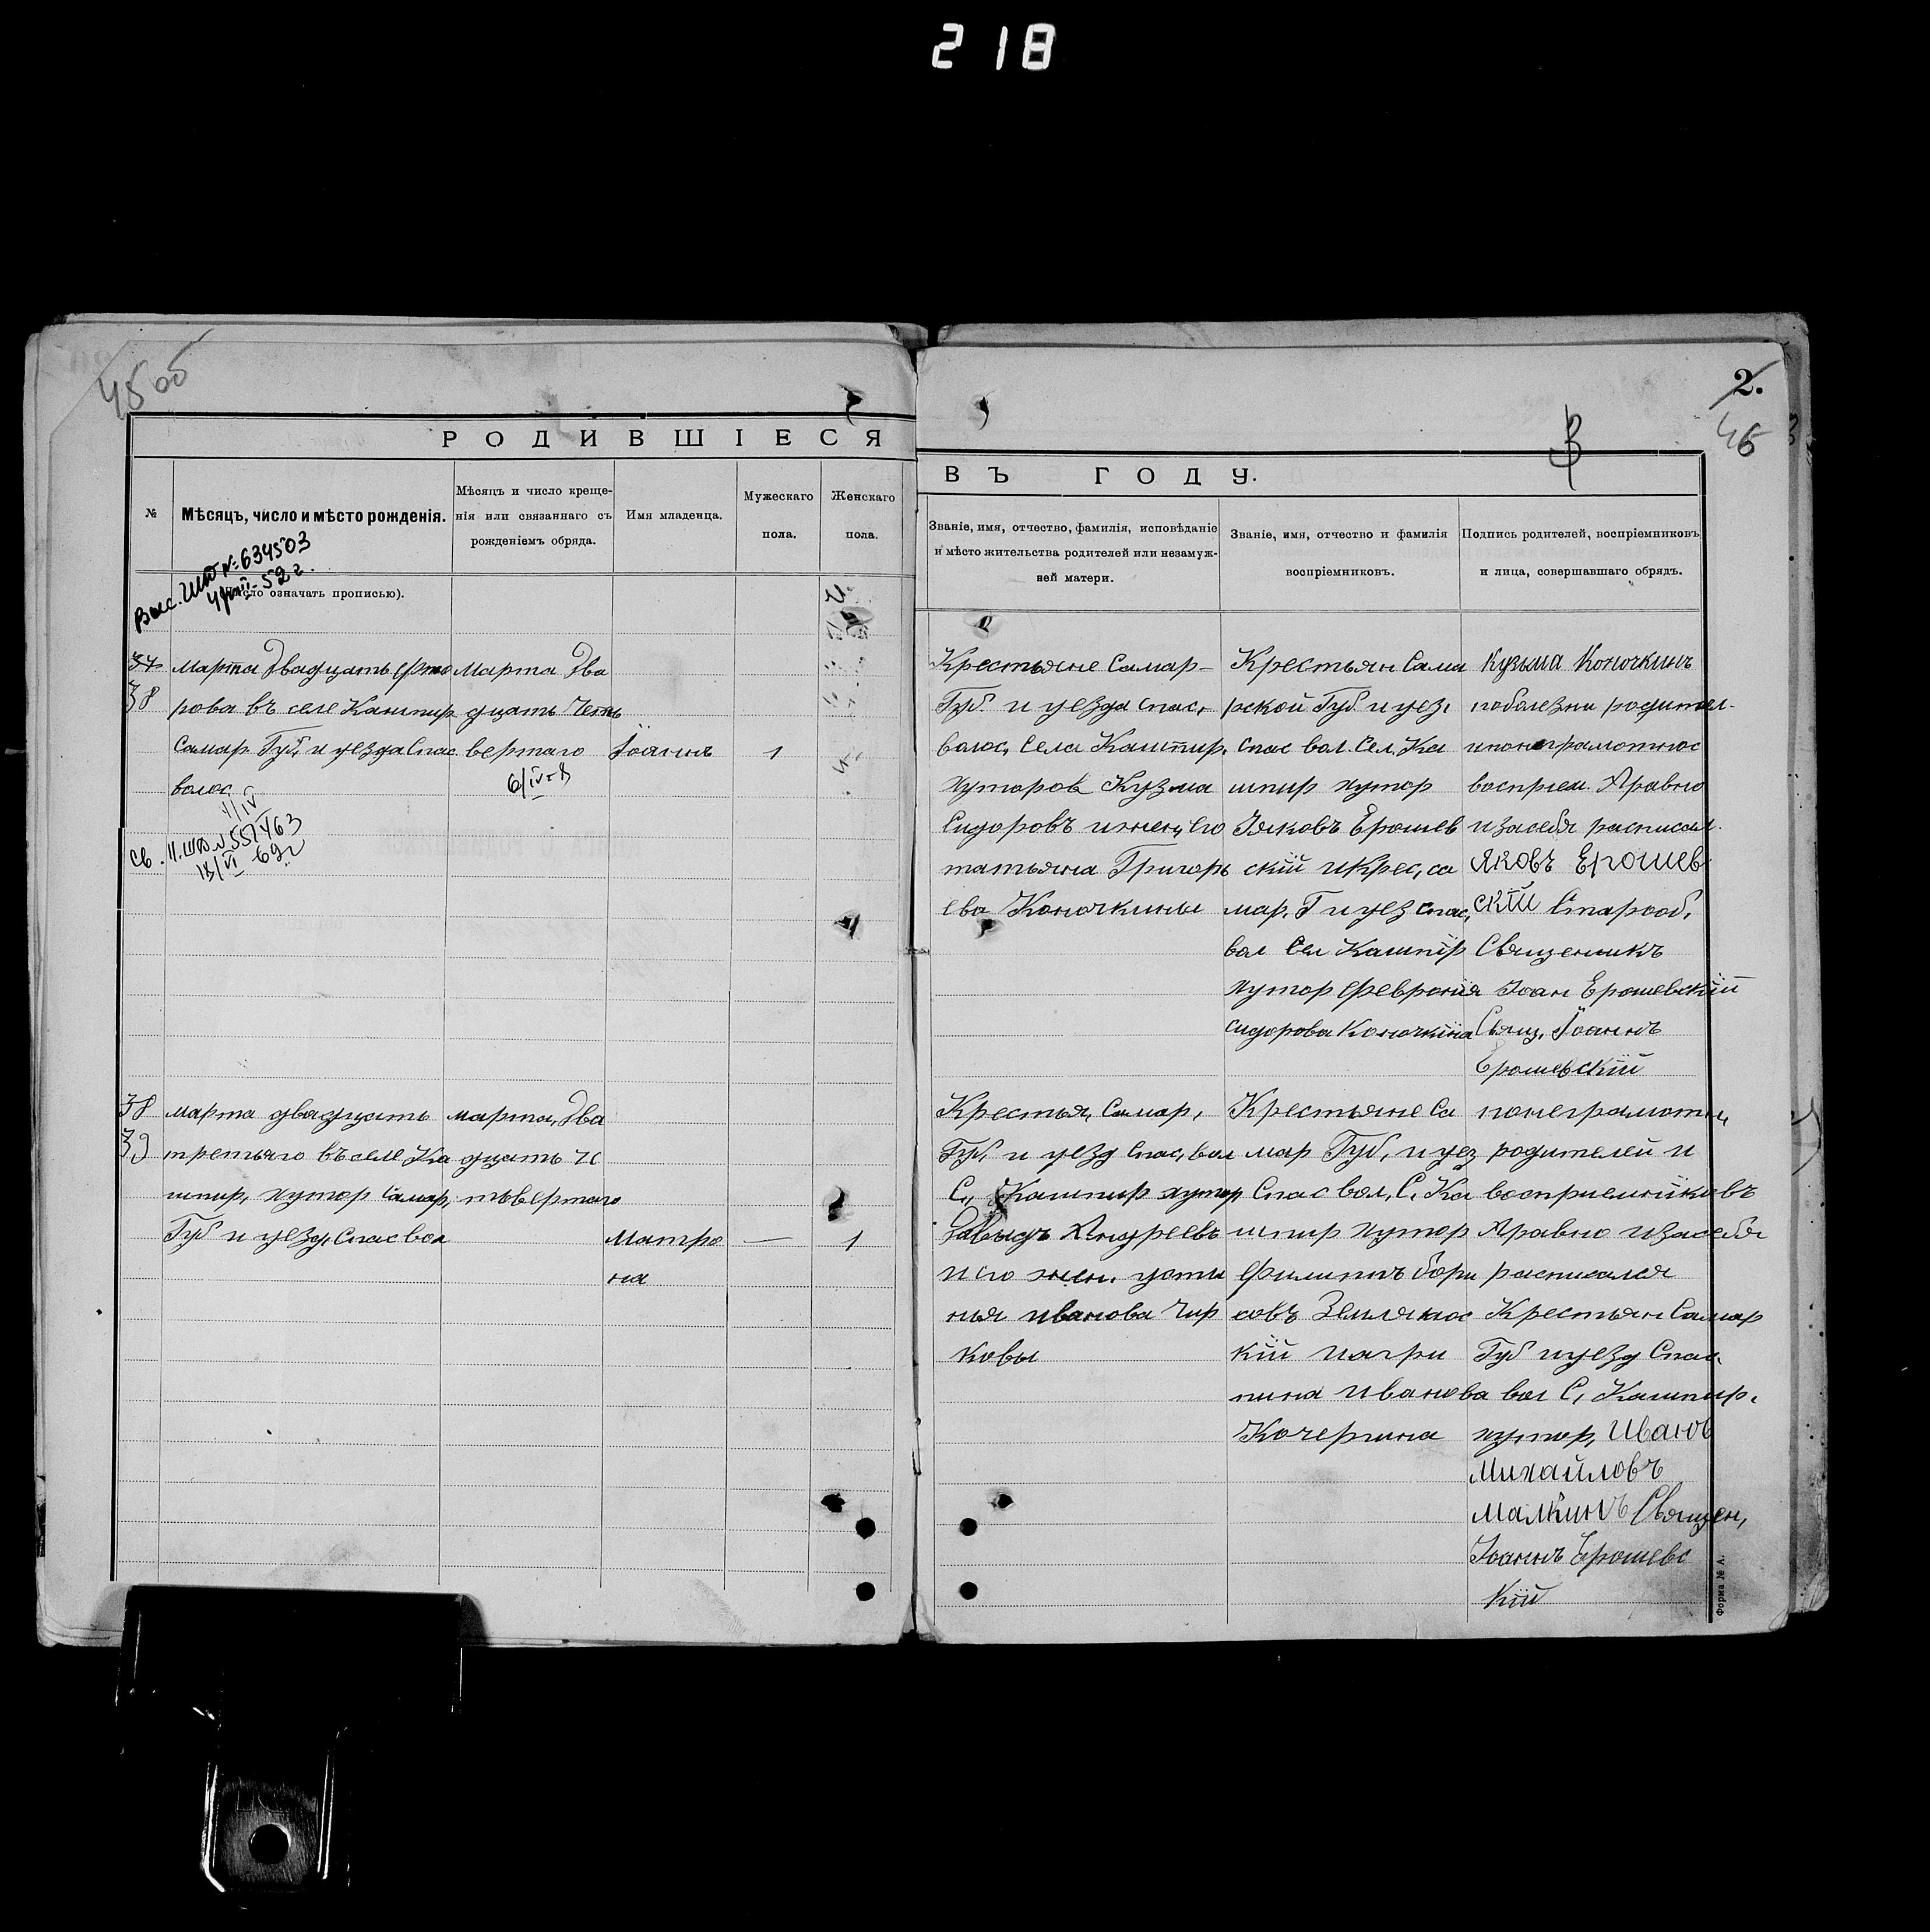 218
45 об
2.
46
РОДИВШІЕСЯ
ВЪ ГОДУ.
№
Мѣсяцъ, число и мѣсто рожденія.
Мѣсяцъ и число креще-
нія или связаннаго съ
рожденіемъ обряда.
Имя младенца.
Мужескаго
пола.
Женскаго
пола.
Званіе, имя, отчество, фамилія, исповѣданіе
и мѣсто жительства родителей или незамуж-
ней матери.
Званіе, имя, отчество и фамилія
воспріемниковъ.
Подпись родителей, воспріемниковъ
и лица, совершавшаго обрядъ.
число означать прописью).
№ 634503
52 г.
37
38
марта двадцать
рова въ селе Кашпир
Самар. Губ, и уезда Спас
волос
марта два
дцать четь
вертаго
Іоаннъ
1
II. № 551463
69 г
Крестьяне Самар-
Губ. и уезда Спас,
волос, села Кашпир,
хуторов Кузма
Сидоровъ и жен, его
татьяна Григорь
ева Конючкины
Крестьян Сама
рской Губ и уез,
Спас вол. Сел. Ка
шпир хутор
Іяковъ Ерошев
скій и Крес, са
мар. Г и уез Спас,
вол Сел Кашпір
хутор Феврония
сидорова Конючкіна
Кузьма Конючкинъ
поболезни родител-
и по неграмотнос
восприем. Аравно
и засебя расписал
Яковъ Ерошев
скій Старооб,
Священикъ
Іоан Ерошевскій
Свящ, Іоаннъ
Ерошевскій
38
39
марта двадцать
третьяго въ селе Ка
шпир, хутор Самар,
Губ и уезд, Спас вол
марта, два
дцать че
тъвертаго
Матро
на
—
1
Крестья, Самар,
Губ, и уезд Спас, вол
С, Кашпир хутор
Давыдъ Андреевъ
и его жен. усти
нья иванова Чир
ковы
Крестьяне Са
мар Губ, и уез
Спас вол, С, Ка
шпир хутор
Филиппъ бори
совъ Землянос
кій и агри
пина иванова
Кочергина
по неграмотн,
родителей и
восприемниковъ
Аравно и засебя
расписался
Крестьян Самар
Губ и уезд Спас.
вол С, Кашпир.
хутор, Иванъ
Михайловъ
Малкинъ Священ,
Іоаннъ Ерошевс
кій
Форма № А.